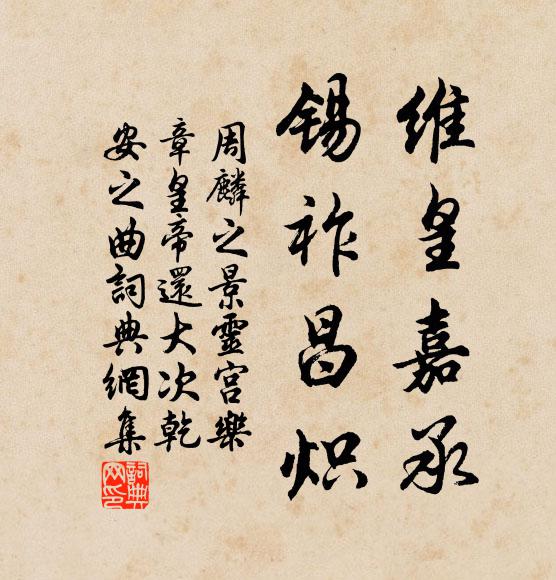 維皇嘉承
錫祚昌炽
周麟之景靈宮樂
章皇帝還大次乾
安之曲詞典網集
詞典網印